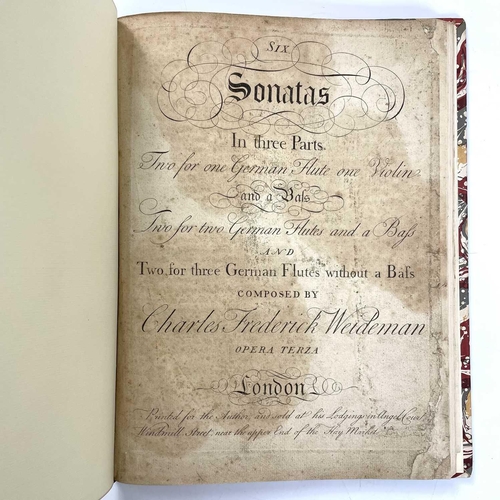 SIX
Sonatas
In three Parts.
Two for one German Flute one Violin
and a Baſs
Two for two German Flutes and a Baſs
AND
Two for three German Flutes without a Baſs
COMPOSED BY
Charles Frederick Weideman
OPERA TERZA
London
Printed for the Author, and sold at his Lodgings in Angel Court
Windmill Street, near the upper End of the Hay Market